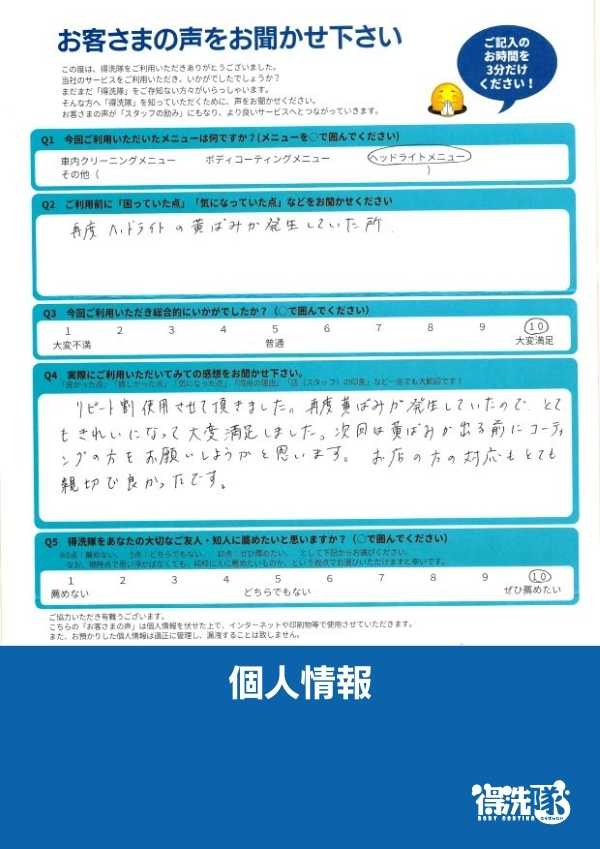 お客さまの声をお聞かせ下さい
ご記入の
お時間を
3分だけ
ください！
この度は、得洗隊をご利用いただきありがとうございました。
当社のサービスをご利用いただき、いかがでしたでしょうか？
まだまだ「得洗隊」をご存知ない方々がいらっしゃいます。
そんな方へ「得洗隊」を知っていただくために、声をお聞かせください。
お客さまの声が「スタッフの励み」にもなり、より良いサービスへとつながっていきます。
Q1 今回ご利用いただいたメニューは何ですか？(メニューを○で囲んでください)
車内クリーニングメニュー ボディコーティングメニュー ヘッドライトメニュー
その他（ ）
Q2 ご利用前に「困っていた点」「気になっていた点」などをお聞かせください
再度ヘッドライトの黄ばみが発生していた所.
Q3 今回ご利用いただき総合的にいかがでしたか？（○で囲んでください）
1 2 3 4 5 6 7 8 9 10
大変不満 普通 大変満足
Q4 実際にご利用いただいてみての感想をお聞かせ下さい。
「良かった点」「嬉しかった点」「気になった点」「活用の理由」「店（スタッフ）の印象」など一言でも大歓迎です！
リピート割使用させて頂きました。再度黄ばみが発生していたので、とて
もきれいになって大変満足しました。次回は黄ばみが出る前にコーティ
ングの方をお願いしようかと思います。お店の方の対応もとても
親切で良かったです。
Q5 得洗隊をあなたの大切なご友人・知人に薦めたいと思いますか？（○で囲んでください）
※0点：薦めない、 5点：どちらでもない、 10点：ぜひ薦めたい、 として下記からお選びください。
なお、
1 2 3 4 5 6 7 8 9 10
薦めない どちらでもない ぜひ薦めたい
ご協力いただき有難うございます。
こちらの「お客さまの声」は個人情報を伏せた上で、インターネットや印刷物等で使用させていただきます。
また、お預かりした個人情報は適正に管理し、漏洩することは致しません。
個人情報
得洗隊
BODY COATING